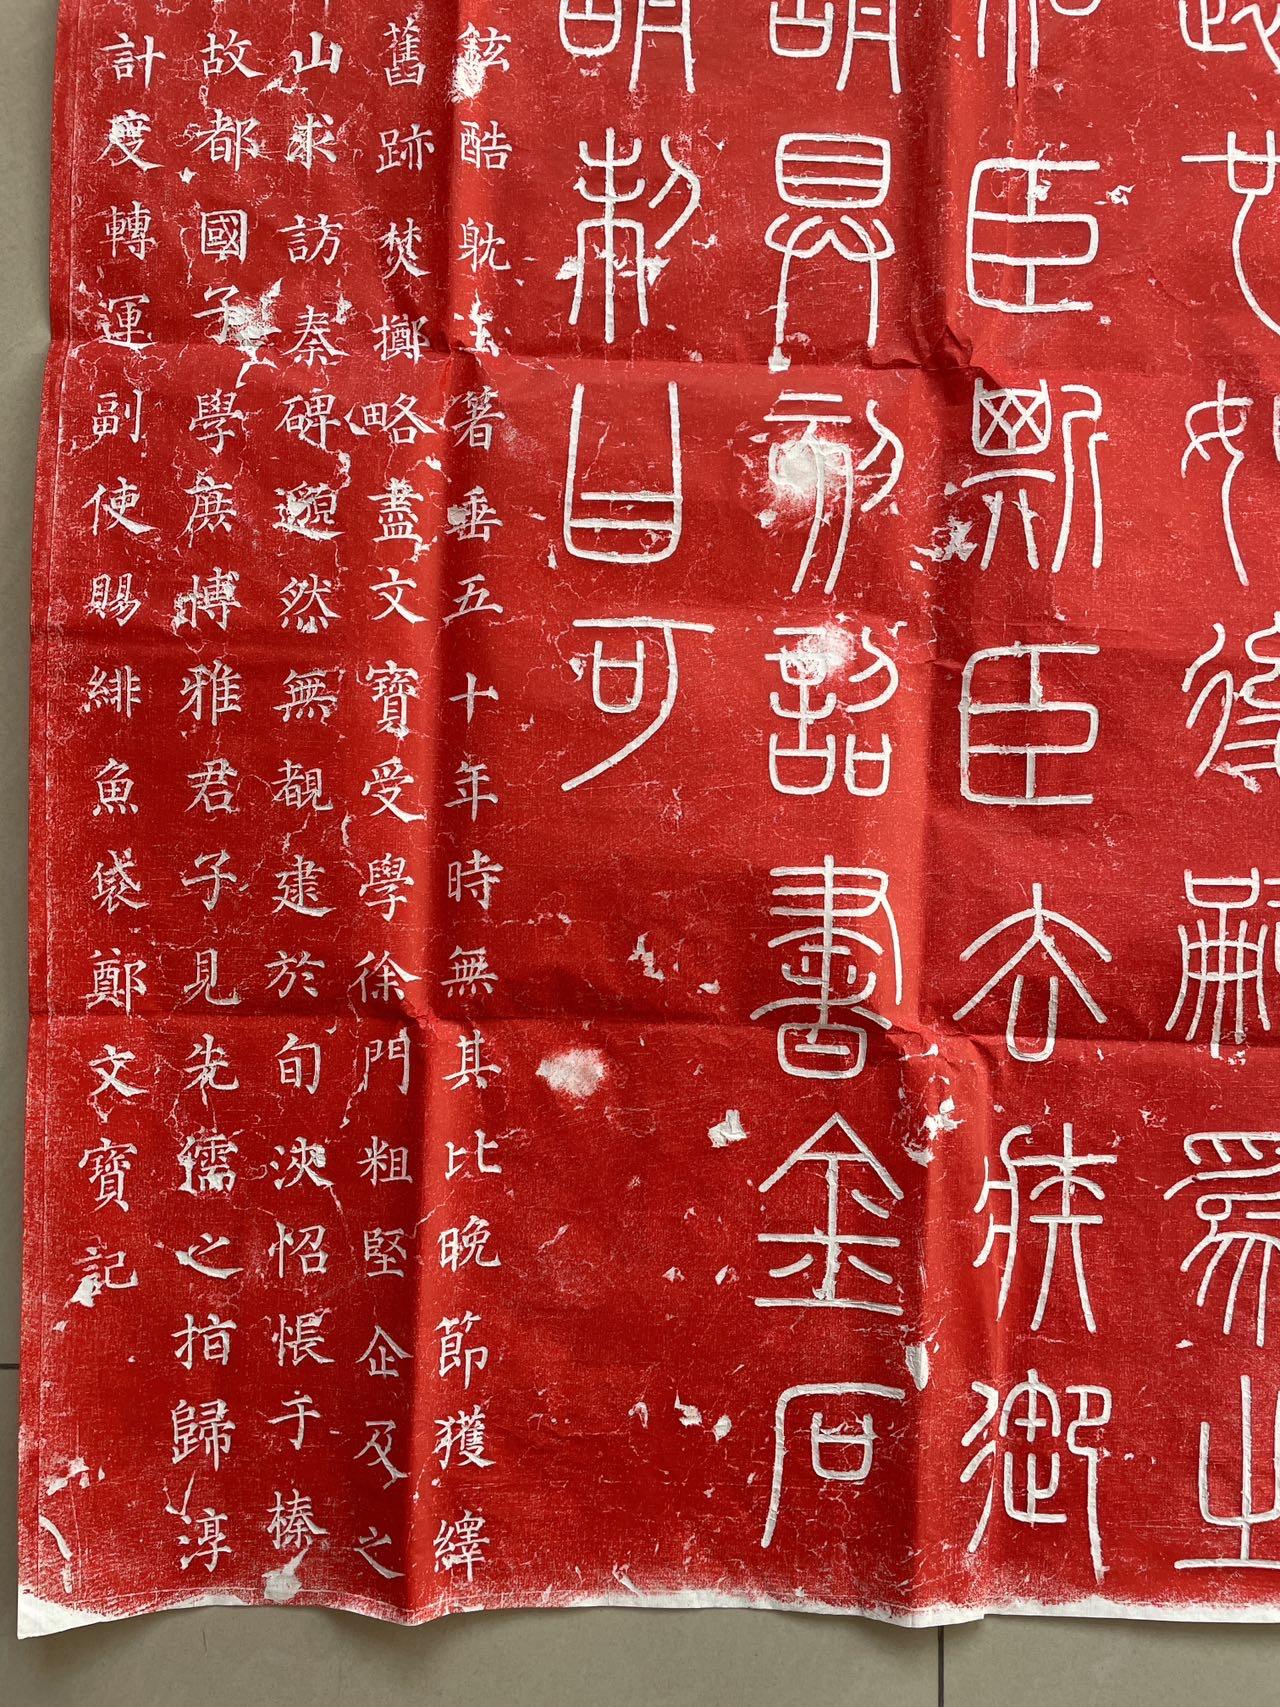 也如後嗣爲之
臣斯臣去疾御
具刻詔書金石
制曰可
鉉酷躭玉箸垂五十年時無其比晚節獲繹
舊跡焚擲略盡文寶受學徐門粗堅企及之
山求訪秦碑邈然無覩逮於旬浹怊悵于榛
故都國子學庶博雅君子見先儒之指歸淳
計度轉運副使賜緋魚袋鄭文寶記